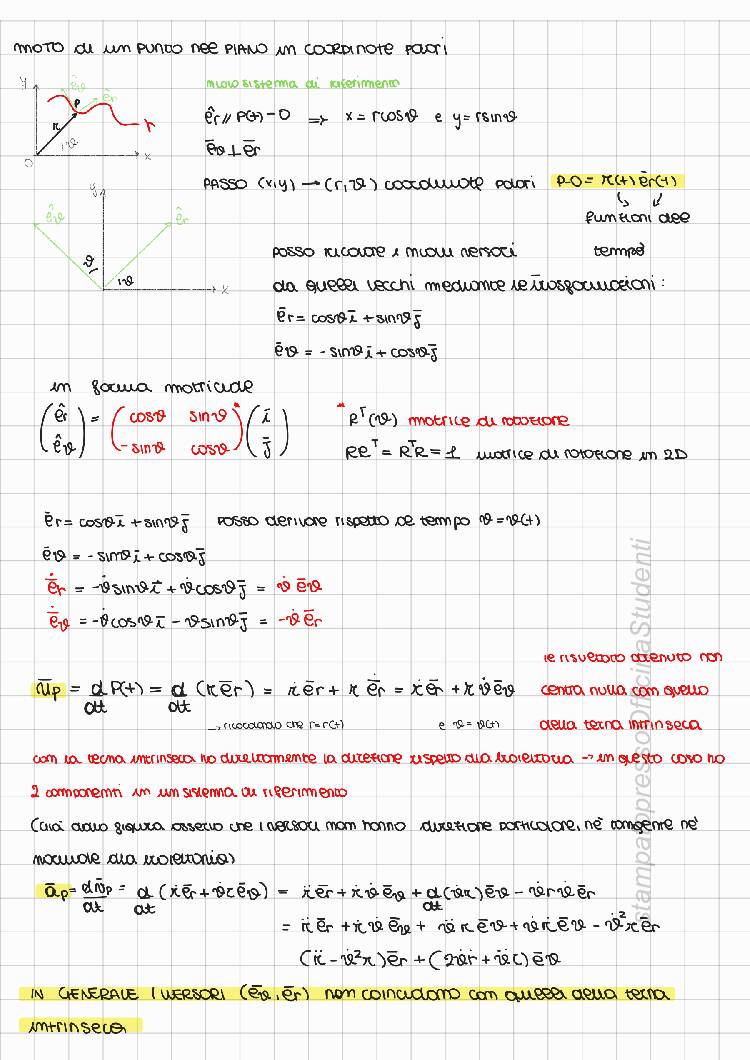 MOTO di un PUNTO nel PIANO in COORDINATE POLARI
y
ēϑ
P
êr
r
r
ϑ
O
x
nuovo sistema di riferimento
êr // P(t)-O => x = rcosϑ e y = rsinϑ
ēϑ ⊥ ēr
PASSO (x,y) → (r,ϑ) coordinate polari P-O = r(t) ēr(t)
funzioni del
tempo
y
êϑ
êr
ϑ
ϑ
x
posso ricavare i nuovi versori
da quelli vecchi mediante le trasformazioni:
ēr = cosϑ ī + sinϑ j̄
ēϑ = -sinϑ ī + cosϑ j̄
in forma matriciale
(êr êϑ) = (cosϑ sinϑ -sinϑ cosϑ)* (ī j̄)
* Rᵀ(ϑ) matrice di rotazione
RRᵀ = RᵀR = 1 matrice di rotazione in 2D
ēr = cosϑ ī + sinϑ j̄ posso derivare rispetto al tempo ϑ = ϑ(t)
ēϑ = -sinϑ ī + cosϑ j̄
ē̇r = -ϑ̇ sinϑ ī + ϑ̇ cosϑ j̄ = ϑ̇ ēϑ
ē̇ϑ = -ϑ̇ cosϑ ī - ϑ sinϑ j̄ = -ϑ̇ ēr
le risultato ottenuto non
v̄p = d/dt P(t) = d/dt (r ēr) = ṙ ēr + r ē̇r = ṙ ēr + r ϑ̇ ēϑ
centra nulla con quello
→ ricordando che r=r(t) e ϑ=ϑ(t)
della terna intrinseca
con la terna intrinseca ho direttamente la direzione rispetto alla traiettoria → in questo caso ho
2 componenti in un sistema di riferimento
(già dalla figura osservo che i versori non hanno direzione particolare, nè tangente nè
normale alla traiettoria)
āp = dv̄p/dt = d/dt (ṙ ēr + ϑ̇ r ēϑ) = r̈ ēr + ṙ ϑ̇ ēϑ + d/dt (ϑ̇ r) ēϑ - ϑ̇ r ϑ̇ ēr
= r̈ ēr + ṙ ϑ̇ ēϑ + ϑ̈ r ēϑ + ϑ̇ ṙ ēϑ - ϑ̇² r ēr
(r̈ - ϑ̇² r) ēr + (2ϑ̇ ṙ + ϑ̈ r) ēϑ
IN GENERALE I VERSORI (ēϑ, ēr) non coincidono con quelli della terna
intrinseca
stampatopressoOfficinaStudenti